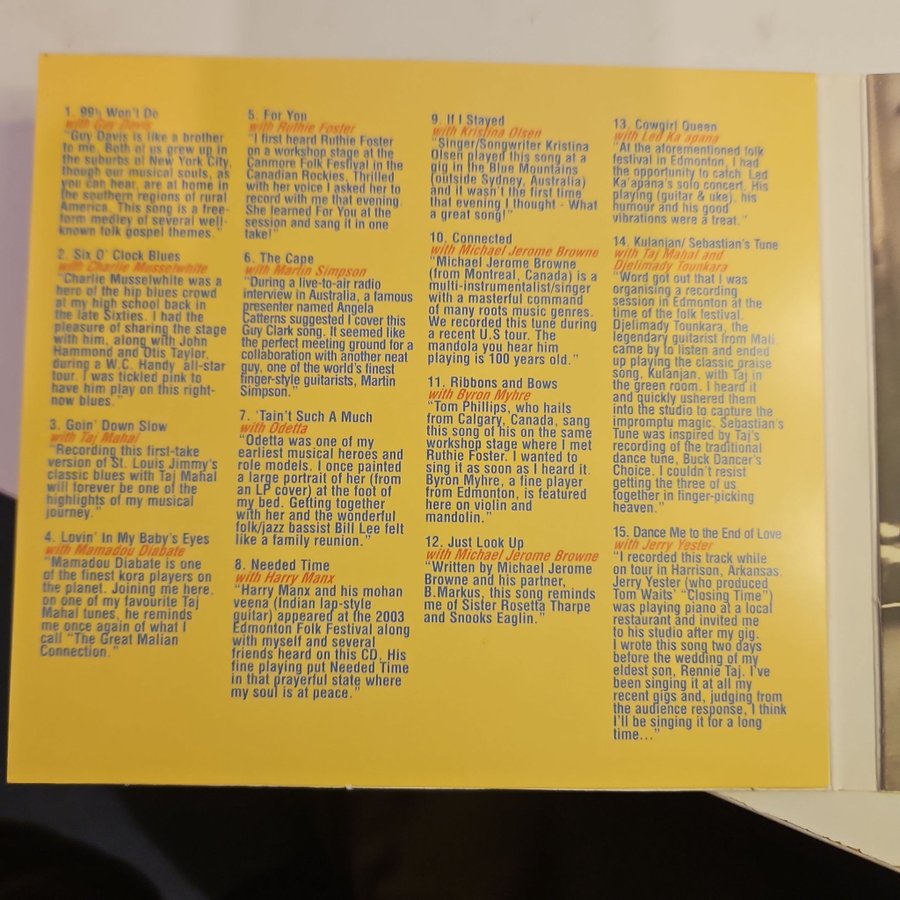 1. 99½ Won't Do
with Guy Davis
"Guy Davis is like a brother
to me. Both of us grew up in
the suburbs of New York City,
though our musical souls, as
you can hear, are at home in
the southern regions of rural
America. This song is a free-
form medley of several well-
known folk gospel themes."
2. Six O' Clock Blues
with Charlie Musselwhite
"Charlie Musselwhite was a
hero of the hip blues crowd
at my high school back in
the late Sixties. I had the
pleasure of sharing the stage
with him, along with John
Hammond and Otis Taylor,
during a W.C. Handy all-star
tour. I was tickled pink to
have him play on this right-
now blues."
3. Goin' Down Slow
with Taj Mahal
"Recording this first-take
version of St. Louis Jimmy's
classic blues with Taj Mahal
will forever be one of the
highlights of my musical
journey."
4. Lovin' In My Baby's Eyes
with Mamadou Diabate
"Mamadou Diabate is one
of the finest kora players on
the planet. Joining me here,
on one of my favourite Taj
Mahal tunes, he reminds
me once again of what I
call "The Great Malian
Connection."
5. For You
with Ruthie Foster
"I first heard Ruthie Foster
on a workshop stage at the
Canmore Folk Festival in the
Canadian Rockies. Thrilled
with her voice I asked her to
record with me that evening.
She learned For You at the
session and sang it in one
take!"
6. The Cape
with Martin Simpson
"During a live-to-air radio
interview in Australia, a famous
presenter named Angela
Catterns suggested I cover this
Guy Clark song. It seemed like
the perfect meeting ground for a
collaboration with another neat
guy, one of the world's finest
finger-style guitarists, Martin
Simpson."
7. 'Tain't Such A Much
with Odetta
"Odetta was one of my
earliest musical heroes and
role models. I once painted
a large portrait of her (from
an LP cover) at the foot of
my bed. Getting together
with her and the wonderful
folk/jazz bassist Bill Lee felt
like a family reunion."
8. Needed Time
with Harry Manx
"Harry Manx and his mohan
veena (Indian lap-style
guitar) appeared at the 2003
Edmonton Folk Festival along
with myself and several
friends heard on this CD. His
fine playing put Needed Time
in that prayerful state where
my soul is at peace."
9. If I Stayed
with Kristina Olsen
"Singer/Songwriter Kristina
Olsen played this song at a
gig in the Blue Mountains
(outside Sydney, Australia)
and it wasn't the first time
that evening I thought - What
a great song!"
10. Connected
with Michael Jerome Browne
"Michael Jerome Browne
(from Montreal, Canada) is a
multi-instrumentalist/singer
with a masterful command
of many roots music genres.
We recorded this tune during
a recent U.S tour. The
mandola you hear him
playing is 100 years old."
11. Ribbons and Bows
with Byron Myhre
"Tom Phillips, who hails
from Calgary, Canada, sang
this song of his on the same
workshop stage where I met
Ruthie Foster. I wanted to
sing it as soon as I heard it.
Byron Myhre, a fine player
from Edmonton, is featured
here on violin and
mandolin."
12. Just Look Up
with Michael Jerome Browne
"Written by Michael Jerome
Browne and his partner,
B.Markus, this song reminds
me of Sister Rosetta Tharpe
and Snooks Eaglin."
13. Cowgirl Queen
with Led Ka'apana
"At the aforementioned folk
festival in Edmonton, I had
the opportunity to catch Led
Ka'apana's solo concert. His
playing (guitar & uke), his
humour and his good
vibrations were a treat."
14. Kulanjan/ Sebastian's Tune
with Taj Mahal and
Djelimady Tounkara
"Word got out that I was
organising a recording
session in Edmonton at the
time of the folk festival.
Djelimady Tounkara, the
legendary guitarist from Mali,
came by to listen and ended
up playing the classic praise
song, Kulanjan, with Taj in
the green room. I heard it
and quickly ushered them
into the studio to capture the
impromptu magic. Sebastian's
Tune was inspired by Taj's
recording of the traditional
dance tune, Buck Dancer's
Choice. I couldn't resist
getting the three of us
together in finger-picking
heaven."
15. Dance Me to the End of Love
with Jerry Yester
"I recorded this track while
on tour in Harrison, Arkansas.
Jerry Yester (who produced
Tom Waits' "Closing Time")
was playing piano at a local
restaurant and invited me
to his studio after my gig.
I wrote this song two days
before the wedding of my
eldest son, Rennie Taj. I've
been singing it at all my
recent gigs and, judging from
the audience response, I think
I'll be singing it for a long
time..."